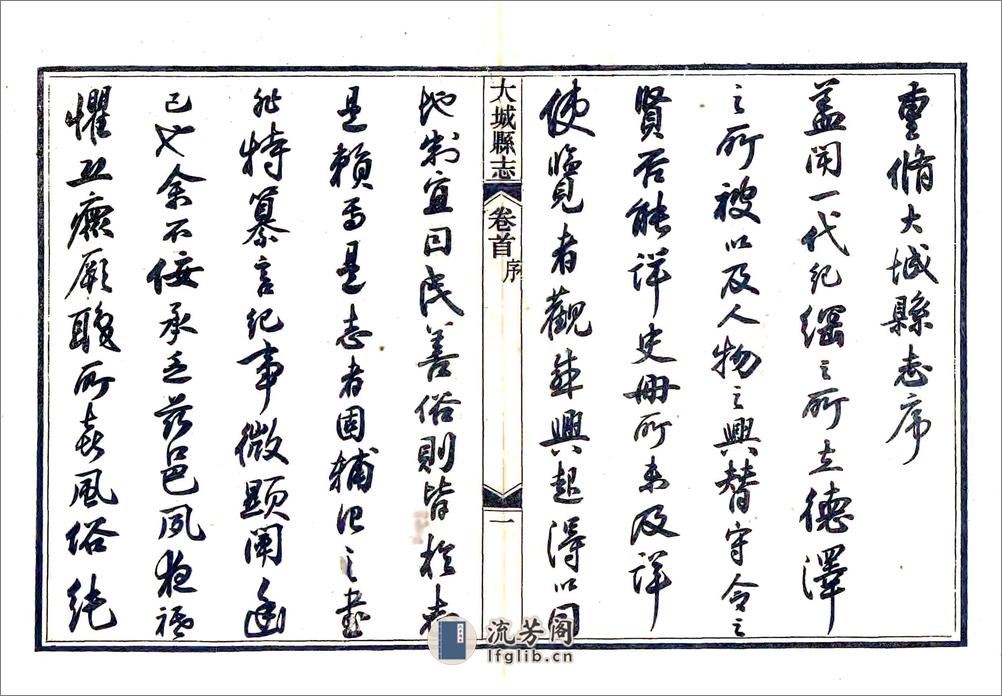 重脩大城縣志序
蓋聞一代紀綱之所立德澤
之所被以及人物之興替守令之
賢否能詳史冊所未及詳
使覽者觀感興起得以因
大城縣志
卷首
序
一
地制宜因民善俗則皆於志
是賴焉是志者固輔治之書
非特纂言紀事微顯闡幽
已也余不佞承乏茲邑夙夜祗
懼恐瘝厥職所喜風俗純
流芳阁
lfglib.cn